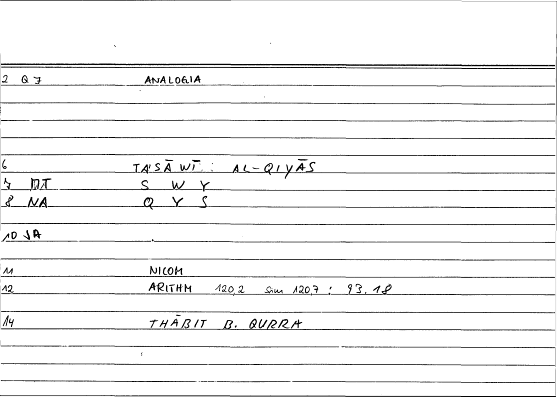 2 Q7 ANALOGIA
6 TASĀWĪ : AL-QIYĀS
7 DT S W Y
8 NA Q Y S
10 JA
11 NICOM
12 ARITHM 120,2 sim 120,7 : 93.18
14 THĀBIT B. QURRA